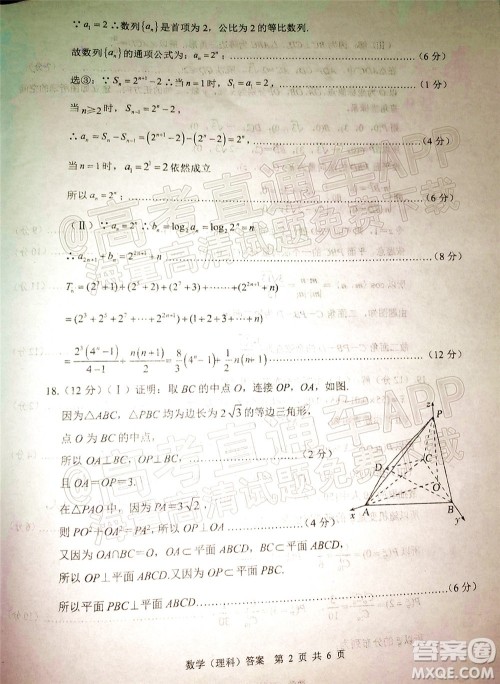 ∵ a₁=2 ∴数列{aₙ}是首项为 2，公比为 2 的等比数列.
故数列{aₙ}的通项公式为：……（6 分）
选③：∵ Sₙ=2ⁿ⁺¹−2 ∴当 n=1 时，S₁=a₁=2 ……（1 分）
当 n≥2 时，
∴ aₙ=Sₙ−Sₙ₋₁=(2ⁿ⁺¹−2)−(2ⁿ−2)=2ⁿ ……（4 分）
当 n=1 时，a₁=2¹=2 依然成立
所以 aₙ=2ⁿ；……（6 分）
（Ⅱ）∵ aₙ=2ⁿ ∴ bₙ=log₂aₙ=log₂2ⁿ=n
∴ a₂ₙ₊₁+bₙ=2²ⁿ⁺¹+n ……（8 分）
Tₙ=(2³+1)+(2⁵+2)+(2⁷+3)+……+(2²ⁿ⁺¹+n)
=(2³+2⁵+2⁷+……+2²ⁿ⁺¹)+(1+2+3+……+n)
=2³(4ⁿ−1)/(4−1)+n(n+1)/2=8/3(4ⁿ−1)+n(n+1)/2 ……（12 分）
18.（12 分）（Ⅰ）证明：取 BC 的中点 O，连接 OP，OA，如图.
因为△ABC，△PBC 均为边长为 2√3 的等边三角形，
点 O 为 BC 的中点，
所以 OA⊥BC，OP⊥BC，……（2 分）
且 OA=OP=3.
在△PAO 中，因为 PA=3√2，
则 PO²+OA²=PA²，所以 OP⊥OA ……（4 分）
又因为 OA∩BC=O，OA⊂平面 ABCD，BC⊂平面 ABCD，
所以 OP⊥平面 ABCD，又因为 OP⊂平面 PBC，
所以平面 PBC⊥平面 ABCD ……（6 分）
z
P
C
D
O
A
B
x
y
@高考直通车APP
海量高清试题免费下载
@高考直通车APP
海量高清试题免费下载
数学（理科）答案 第 2 页 共 6 页
答案圈
MXQE.COM